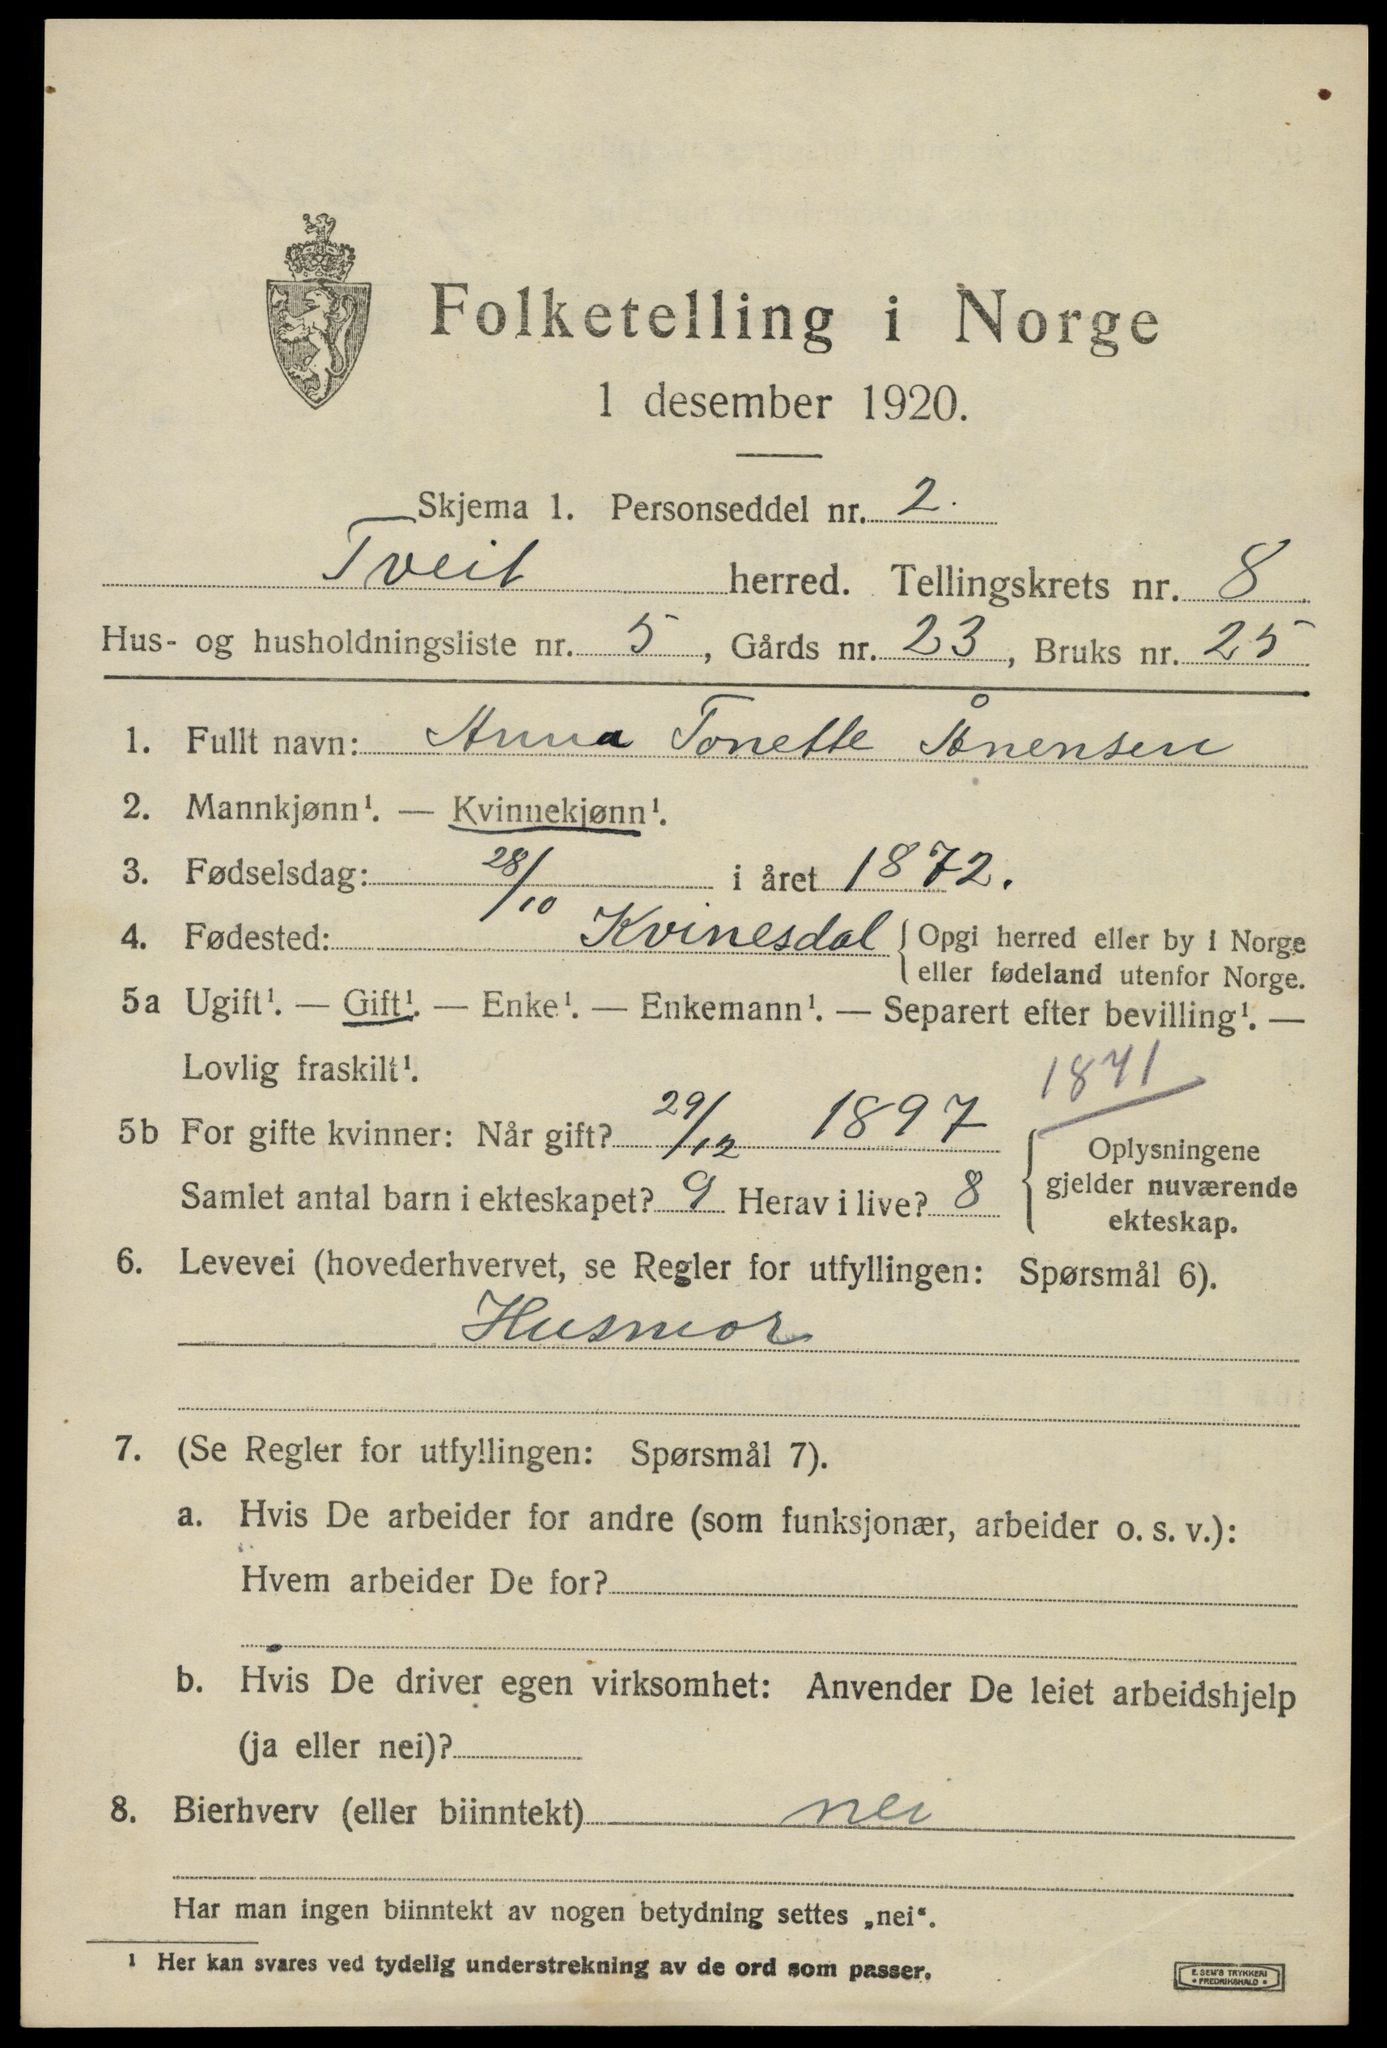 Folketelling i Norge
1 desember 1920.
Skjema 1. Personseddel nr. 2.
Tveit herred. Tellingskrets nr. 8
Hus- og husholdningsliste nr. 5, Gårds nr. 23, Bruks nr. 25
1. Fullt navn: Anna Tonette Ånensen
2. Mannkjønn¹. — Kvinnekjønn¹.
3. Fødselsdag: 28/10 i året 1872.
4. Fødested: Kvinesdal { Opgi herred eller by i Norge
eller fødeland utenfor Norge.
5a Ugift¹. — Gift¹. — Enke¹. — Enkemann¹. — Separert efter bevilling¹. —
Lovlig fraskilt¹.
1871
5b For gifte kvinner: Når gift? 29/12 1897
Samlet antal barn i ekteskapet? 9 Herav i live? 8
Oplysningene
gjelder nuværende
ekteskap.
6. Levevei (hovederhvervet, se Regler for utfyllingen: Spørsmål 6).
Husmor
7. (Se Regler for utfyllingen: Spørsmål 7).
a. Hvis De arbeider for andre (som funksjonær, arbeider o. s. v.):
Hvem arbeider De for?
b. Hvis De driver egen virksomhet: Anvender De leiet arbeidshjelp
(ja eller nei)?
8. Bierhverv (eller biinntekt) nei
Har man ingen biinntekt av nogen betydning settes „nei“.
¹ Her kan svares ved tydelig understrekning av de ord som passer.
E. SEM'S TRYKKERI
• FREDRIKSHALD •